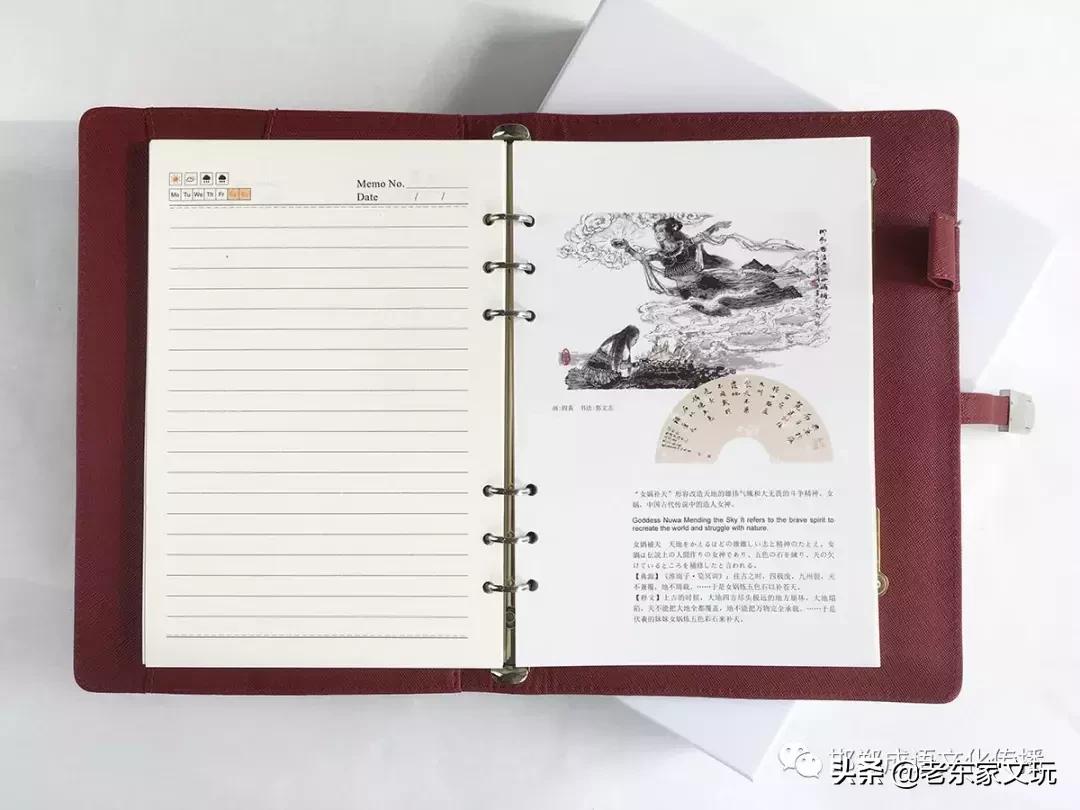 Memo No.
Mo Tu We Th Fr Sa Su
Date / /
画:阎黄 书法:郭文志
“女娲补天”形容改造天地的雄伟气魄和大无畏的斗争精神。女
娲,中国古代传说中的造人女神。
Goddess Nuwa Mending the Sky It refers to the brave spirit to
recreate the world and struggle with nature.
女媧補天 天地をかえるほどの雄雄しい志と精神のたとえ。女
媧は伝説上の人間作りの女神であり、五色の石を練り、天の欠
けているところを補修したと言われる。
【典源】《淮南子·览冥训》:往古之时,四极废,九州裂,天
不兼覆,地不周载。……于是女娲炼五色石以补苍天。
【释文】上古的时候,大地四方尽头极远的地方崩坏,大地塌
陷,天不能把大地全都覆盖,地不能把万物完全承载。……于是
伏羲的妹妹女娲炼五色彩石来补天。
邯郸成语文化传播
头条 @老东家文玩